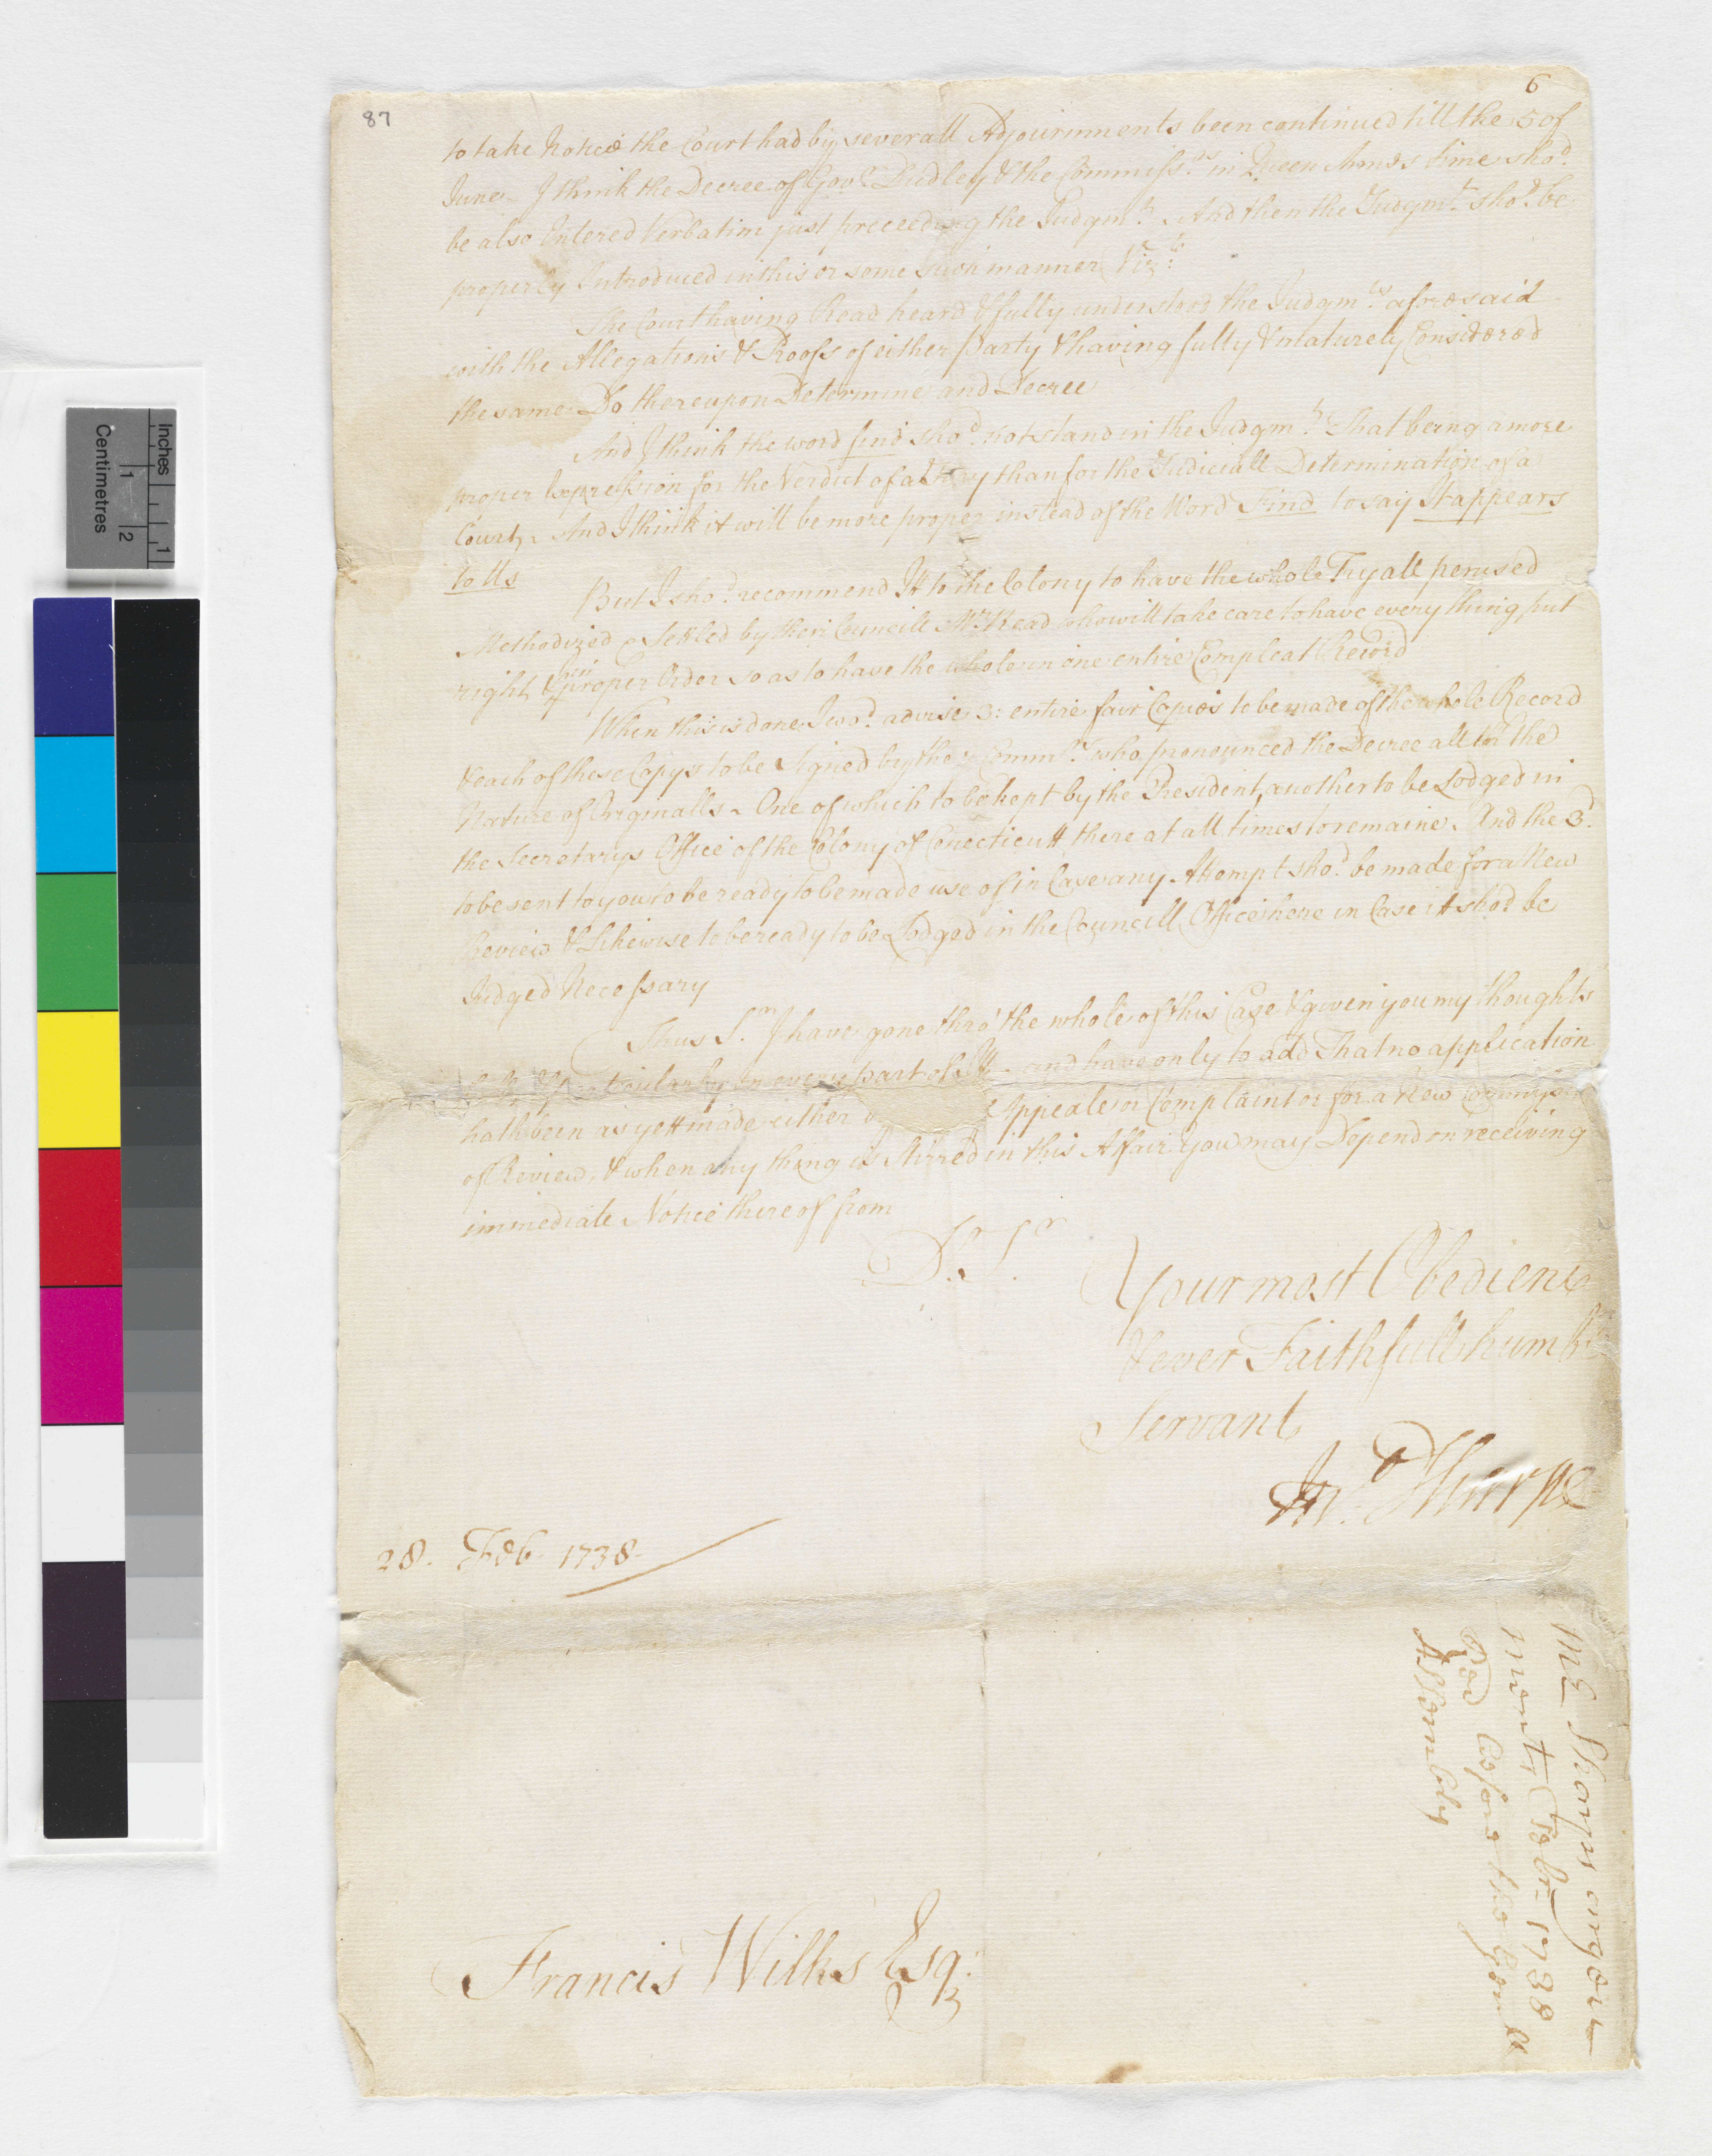 87
6
to take Notice the Court had by severall Adjournments been continued till the 5 of
June - I think the Decree of Govr. Dudley & the Commissrs. in Queen Anns time shod.
be also Entered Verbatim just preceeding the Judgmt. And then the Judgmt. shod. be
properly Introduced in this or some such manner Vizt.
The Court having Read heard & fully understood the Judgmts. aforesaid
with the Allegations & Proofs of either party & having fully & maturely Considered
the same Do thereupon Determine and Decree
And I think the word find shod. not stand in the Judgmt. That being a more
proper Expression for the Verdict of a Jury than for the Judiciall Determination of a
Court, And I think it will be more proper instead of the Word Find to say It appears
to Us
But I shod. recommend It to the Colony to have the whole Tryall perused
Methodized & Setled by their Councill Mr. Read who will take care to have every thing put
right & in proper Order so as to have the whole in one entire Compleat Record
When this is done I wod. advise 3: entire fair Copies to be made of the whole Record
& each of these Copys to be Signed by the Commrs. who pronounced the Decree all in the
Nature of Originalls - One of which to be kept by the President, another to be Lodged in
the Secretarys Office of the Colony of Conecticutt there at all times to remaine. And the 3d.
to be sent to you to be ready to be made use of in Case any Attempt shod. be made for a New
Review & Likewise to be ready to be Lodged in the Councill Office here in Case it shod. be
Judged Necessary
Thus Sr. I have gone thro' the whole of this Case & given you my thoughts
particularly on every part of It - and have only to add That no application
hath been as yett made either Appeale or Complaint or for a New
of Review, & when any thing is stirred in this Affair you may Depend on receiving
immediate Notice thereof from
Dr. Sr.
Your most Obedient
& ever Faithfull humble
Servant
Jno. Sharpe
28. Feb. 1738.
Mr. Sharps argou-
ments Febr. 1738
Red before the Genll
Assembly
Francis Wilks Esqr.